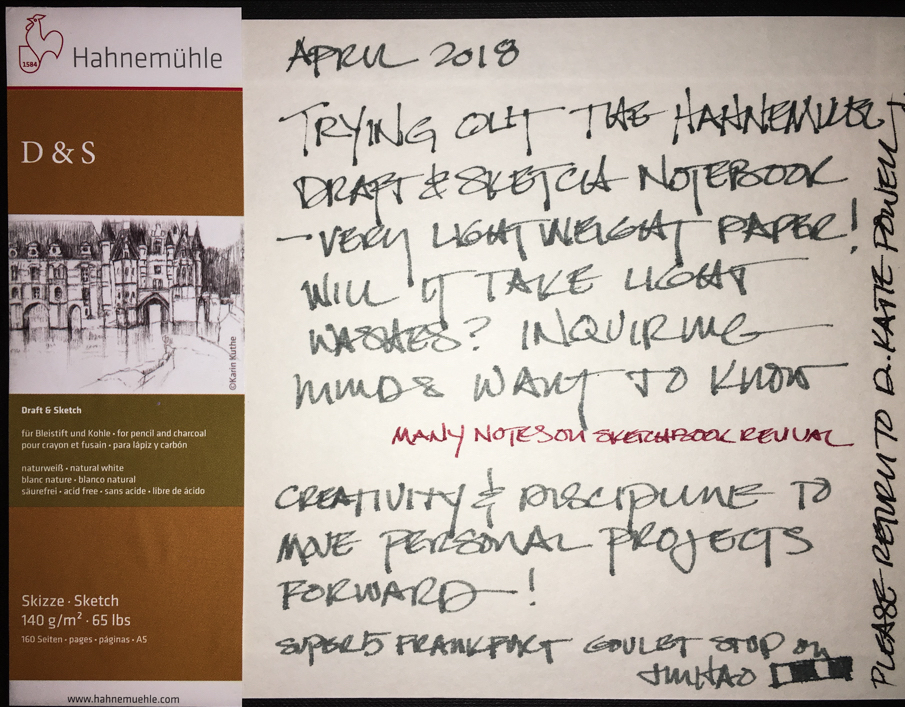 1584
Hahnemühle
D & S
©Karin Kuthe
Draft & Sketch
für Bleistift und Kohle • for pencil and charcoal
pour crayon et fusain • para lápiz y carbón
naturweiß • natural white
blanc nature • blanco natural
säurefrei • acid free • sans acide • libre de ácido
Skizze · Sketch
140 g/m² · 65 lbs
160 Seiten • pages • páginas • A5
www.hahnemuehle.com
APRIL 2018
TRYING OUT THE HAHNEMULEL
DRAFT & SKETCH NOTEBOOK
- VERY LIGHT WEIGHT PAPER!
WILL IT TAKE LIGHT
WASHES? INQUIRING
MINDS WANT TO KNOW
MANY NOTES ON SKETCHBOOK REVIVAL
CREATIVITY & DISCIPLINE TO
MOVE PERSONAL PROJECTS
FORWARD - !
SUPER5 FRANKFURT GOULET STUB on
JINHAO
PLEASE RETURN TO D. KATIE POWELL